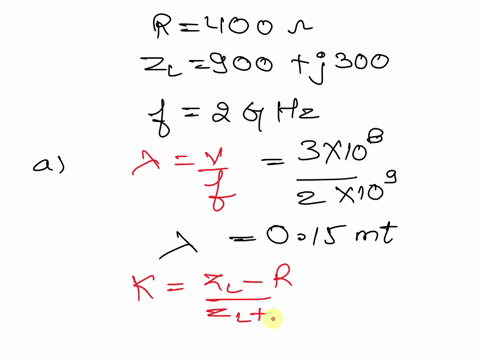 R = 400 Ω
ZL = 900 + j 300
f = 2 G Hz
a) λ = v/f = 3×10^8 / 2×10^9
λ = 0.15 mt
K = ZL - R / ZL +